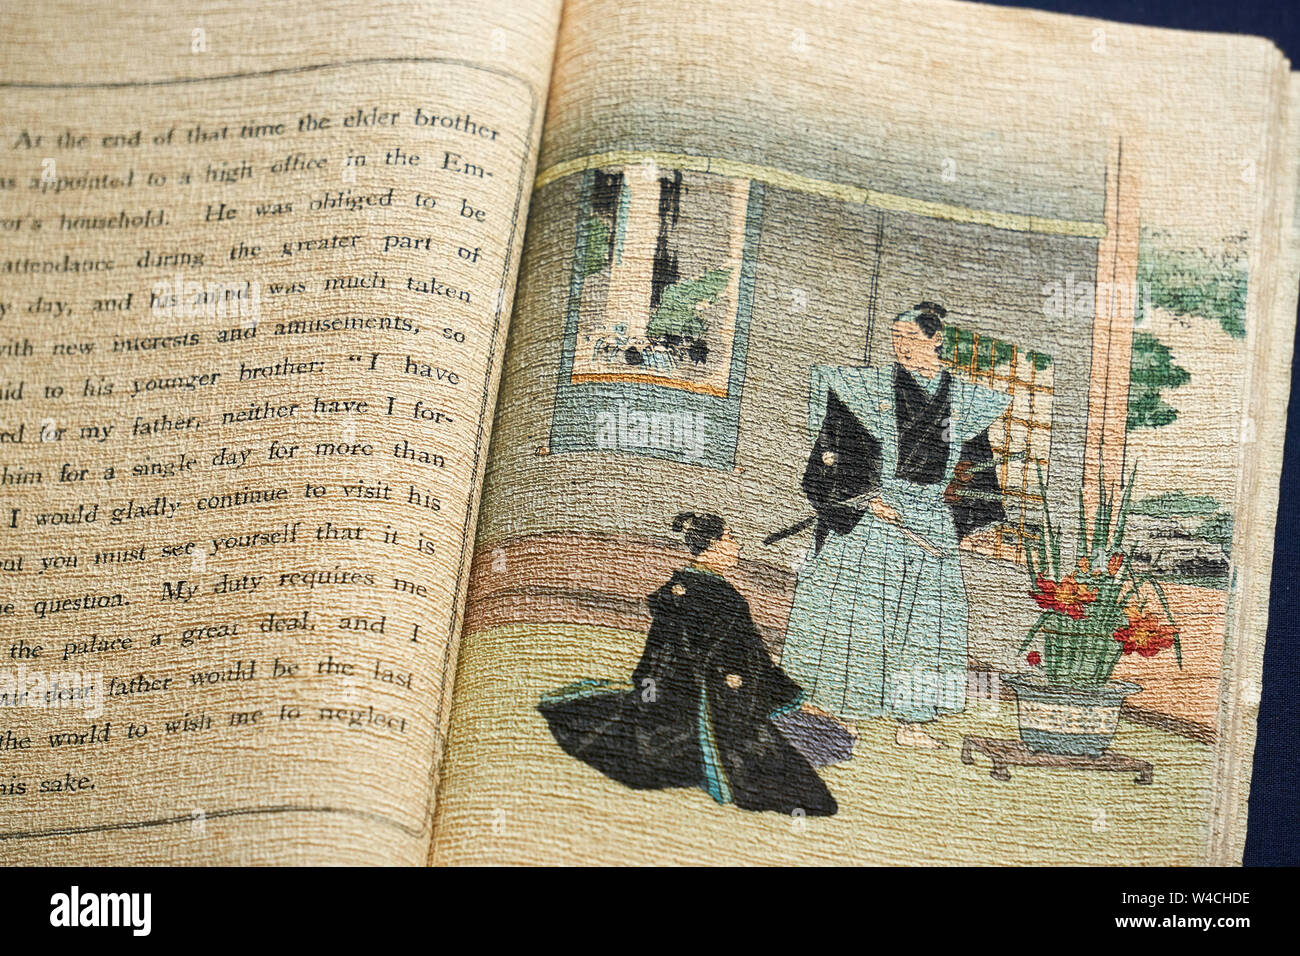 At the end of that time the elder brother
as appointed to a high office in the Em-
ror's household. He was obliged to be
attendance during the greater part of
y day, and his mind was much taken
with new interests and amusements, so
aid to his younger brother: "I have
red for my father, neither have I for-
him for a single day for more than
I would gladly continue to visit his
but you must see yourself that it is
e question. My duty requires me
the palace a great deal, and I
our dear father would be the last
the world to wish me to neglect
his sake.
alamy
a
alamy
Image ID: W4CHDE
www.alamy.com